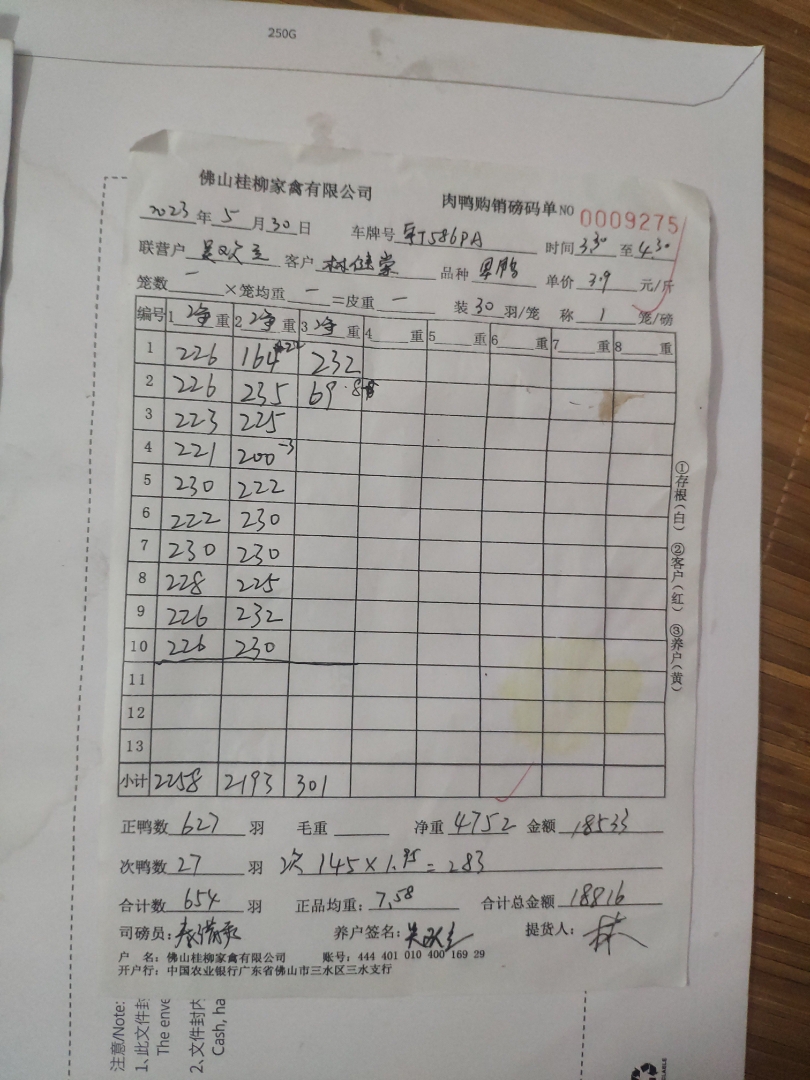 250G
佛山桂柳家禽有限公司 肉鸭购销磅码单NO 0009275
2023年5月30日 车牌号 586PA 时间3.30至4.30
联营户 客户 品种 单价 3.9 元/斤
笼数 一 ×笼均重 一 =皮重 一 装30羽/笼 称 1 笼/磅
编号 1 净重 2 净重 3 净重 4 重 5 重 6 重 7 重 8 重
1 226 164 232
2 226 235 69.8
3 223 225
4 221 200-3
5 230 222
6 222 230
7 230 230
8 228 225
9 226 232
10 226 230
11
12
13
小计 2258 2193 301
正鸭数 627 羽 毛重 净重 4752 金额 18533
次鸭数 27 羽 次 145×1.95=283
合计数 654 羽 正品均重: 7.58 合计总金额 18816
司磅员: 养户签名: 提货人:
户 名: 佛山桂柳家禽有限公司 账号: 444 401 010 400 169 29
开户行: 中国农业银行广东省佛山市三水区三水支行
①存根(白) ②客户(红) ③养户(黄)
注意/Note:
1、此文件封
The enve
2、文件封内
Cash, ha